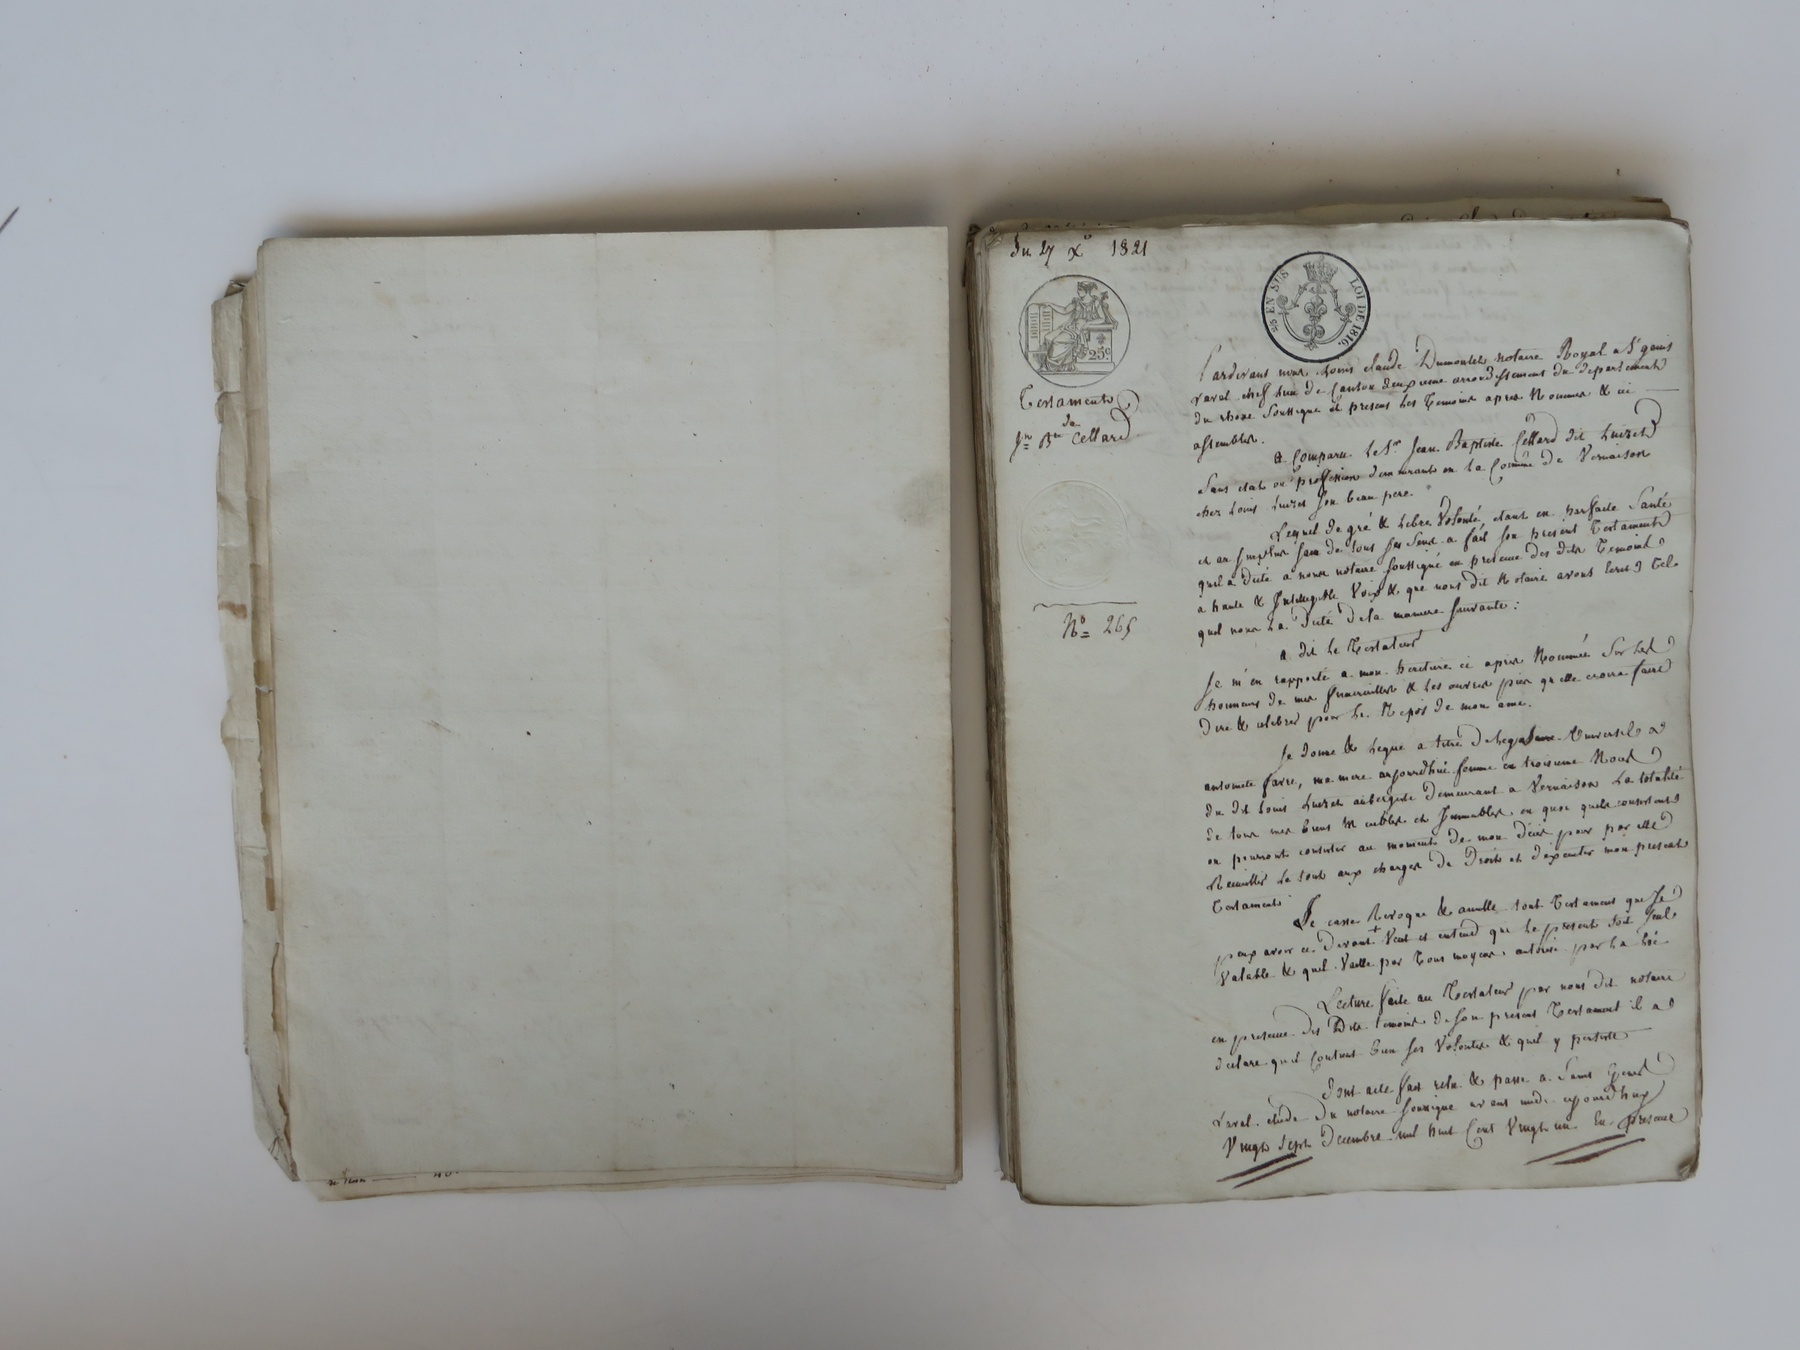 Du 27 Xe 1821
25c
EN SUS LOI DE 1816.
Testament
de
Jn Bte Cellard
No 265
Pardevant nous Louis Claude Dumoulin notaire Royal a St genis
Laval chef lieu de Canton deuxieme arrondissement du departement
du rhone soussigné et present les temoins apres Nommés & ici
assemblés.
a Comparu le Sr Jean Baptiste Cellard dit Luizet
Sans etat ou profession demeurant en la Commune de Vernaison
chez Louis Luizet son beau pere.
Lequel de gré & Libre Volonté, etant en parfaite Santé
et au surplus sain de tous ses Sens a fait son present Testament
quil a Dicté a nous notaire soussigné en presence des dits Temoins
a haute & Intelligible Voix & que nous dit Notaire avons Ecrit Tel
quil nous La Dicté de la maniere suivante :
a dit le Testateur
Je m'en rapporte a mon heritiere ci apres Nommée Sur les
honneurs de mes funerailles & les œuvres pies qu'elle croira faire
dire & celebrer pour le Repos de mon ame.
Je donne & Legue a titre de legataire Universel a
antoinette favre, ma mere aujourdhui femme en troisieme Noces
du dit Louis Luizet aubergiste demeurant a Vernaison La totalité
de tous mes biens Meubles et Immeubles, en quoi quils consistent
ou pourront consister au moment de mon décés pour par elle
Recueillir le tout aux charges de Droit et d'executer mon present
Testament
Je casse Revoque & annulle tout Testament que Je
peux avoir ci devant + Veut et entend que le present soit seul
Valable & quil Vaille par Tous moyens autorisé par La loi
Lecture faite au Testateur par nous dit notaire
en presence des Dits temoins de son present Testament il a
declaré quil Contient bien ses Volontés & quil y persiste
Dont acte fait relu & passé a Saint Genis
Laval etude du notaire soussigné avant midi aujourdhuy
Vingt Sept Decembre mil huit Cent Vingt un En presence